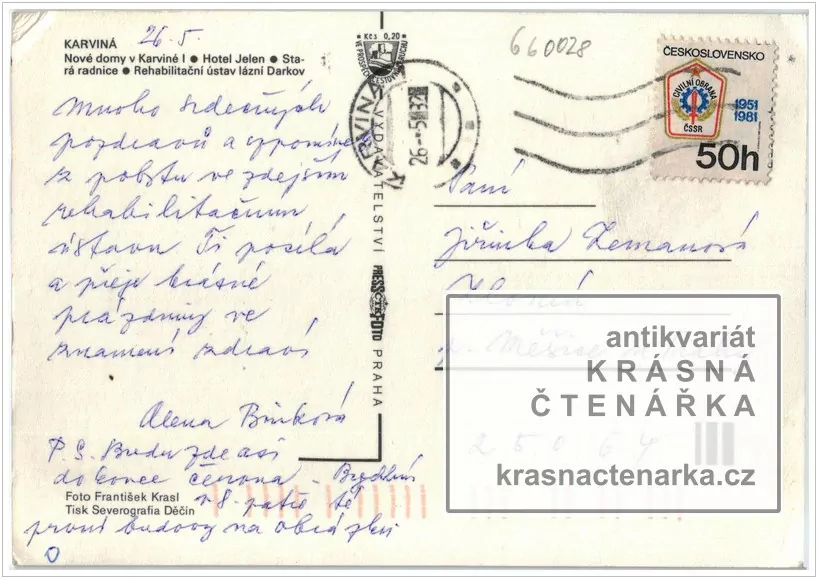 KARVINÁ
26.5.
Nové domy v Karviné I ● Hotel Jelen ● Sta-
rá radnice ● Rehabilitační ústav lázní Darkov
Mnoho srdečných
pozdravů a vzpomínek
z pobytu ve zdejším
rehabilitačním
ústavu Ti posílá
a přeje krásné
prázdniny ve
znamení zdraví
Alena Bínková
P.S. Budu zde asi
do konce června - Bydlím
v 8. patře té
první budovy na obrázku
Foto František Krasl
Tisk Severografia Děčín
Kčs 0,20
VE PROSPĚCH CESTOVNÍHO RUCHU
VYDAVATELSTVÍ
PRESSFOTO
PRAHA
KARVINÁ
26.-5.82
660028
ČESKOSLOVENSKO
CIVILNÍ OBRANA
ČSSR
1951
1981
50h
Paní
Jiřinka Zemanová
p. Měšice
250 64
antikvariát
KRÁSNÁ
ČTENÁŘKA
krasnactenarka.cz